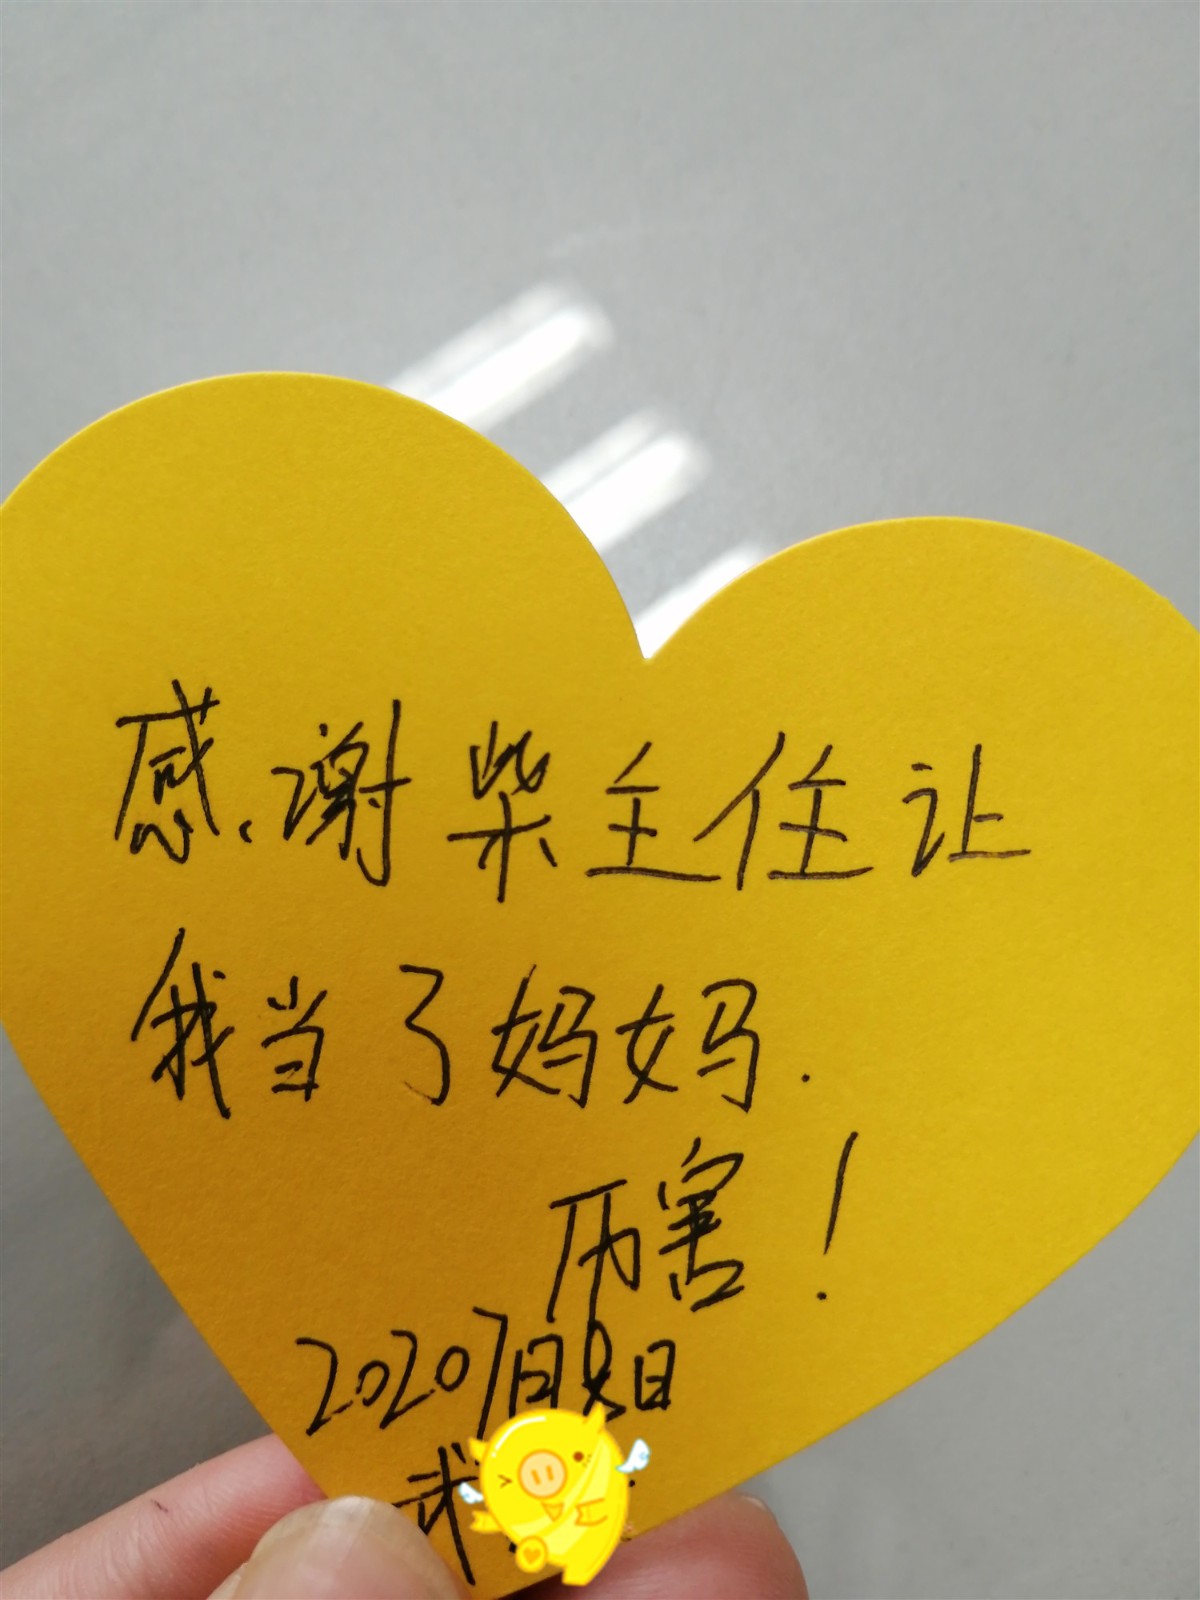 感谢柴主任让
我当了妈妈.
厉害！
2020 7日8日
武